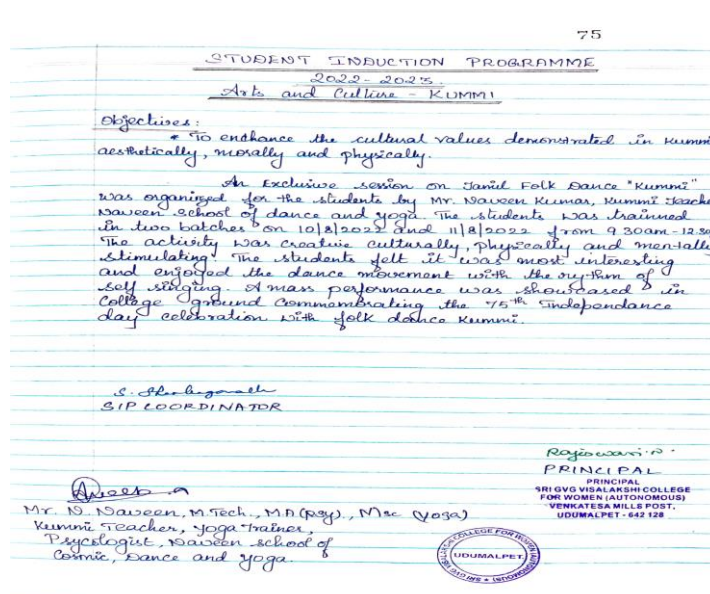 75
STUDENT INDUCTION PROGRAMME
2022-2023
Arts and Culture - KUMMI
Objectives:
* To enchance the cultural values demonstrated in Kummi
aesthetically, morally and physically.
An Exclusive session on Tamil Folk Dance "Kummi"
was organized for the students by Mr. Naveen Kumar, Kummi Teache
Naveen School of dance and yoga. The students was trainned
in two batches on 10/8/2022 and 11/8/2022 from 9.30am-12.30
The activity was creative culturally, physically and mentally
stimulating. The students felt it was most interesting
and enjoyed the dance movement with the rythm of
self singing. A mass performance was showcased in
College ground Commembrating the 75th Independance
day celebration with folk dance Kummi.
SIP COORDINATOR
Rajeswari.
PRINCIPAL
PRINCIPAL
SRI GVG VISALAKSHI COLLEGE
FOR WOMEN (AUTONOMOUS)
VENKATESA MILLS POST.
UDUMALPET - 642 128
Mr. N. Naveen, M.Tech., M.A(Psy)., Msc (Yoga)
Kummi Teacher, Yoga trainer,
Psycologist, Naveen School of
Cosmic, Dance and yoga.
SRI GVG VISALAKSHI COLLEGE FOR WOMEN (AUTONOMOUS)
UDUMALPET.